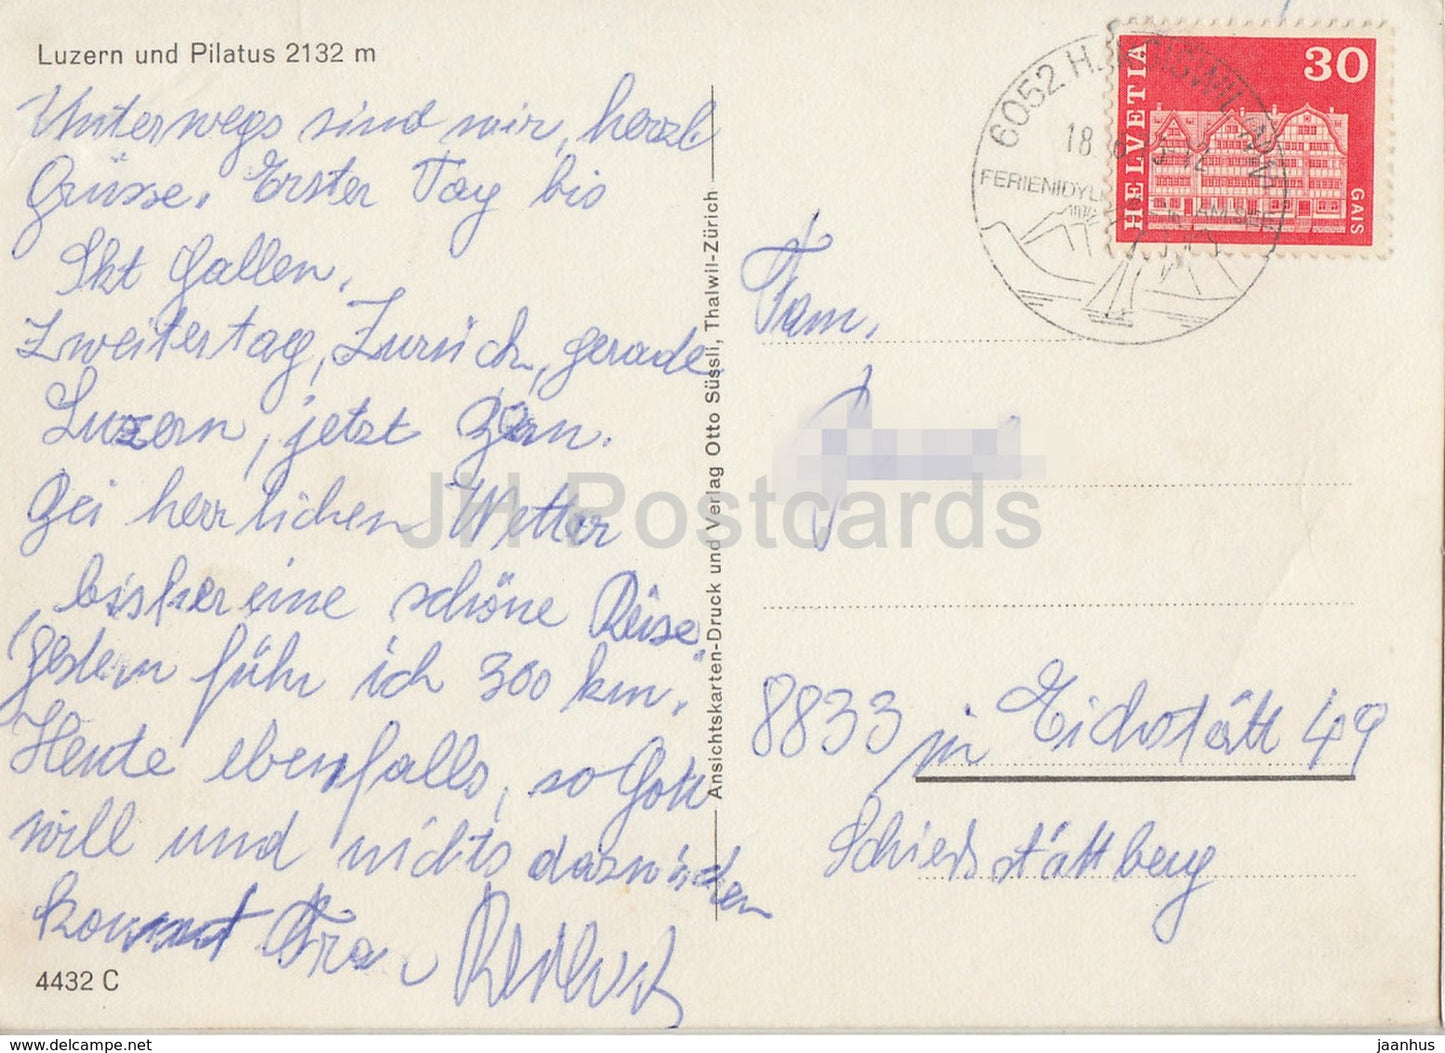 Luzern und Pilatus 2132 m
Unterwegs sind wir, herzl
Grüsse. Erster Tag bis
Skt Gallen.
Zweitertag, Zürich, gerade
Luzern, jetzt
Bei herrlichem Wetter
bisher eine schöne Reise.
gestern fuhr ich 300 km.
Heute ebenfalls, so Gott
will und nichts dazwischen
kommt
4432 C
Ansichtskarten-Druck und Verlag Otto Süssli, Thalwil-Zürich
6052
18.
FERIENIDYLL AM SEE
HELVETIA
30
GAIS
Fam.
8833 in Eichstätt 49
Schiesstättberg
JH Postcards
© www.delcampe.net
jaanhus